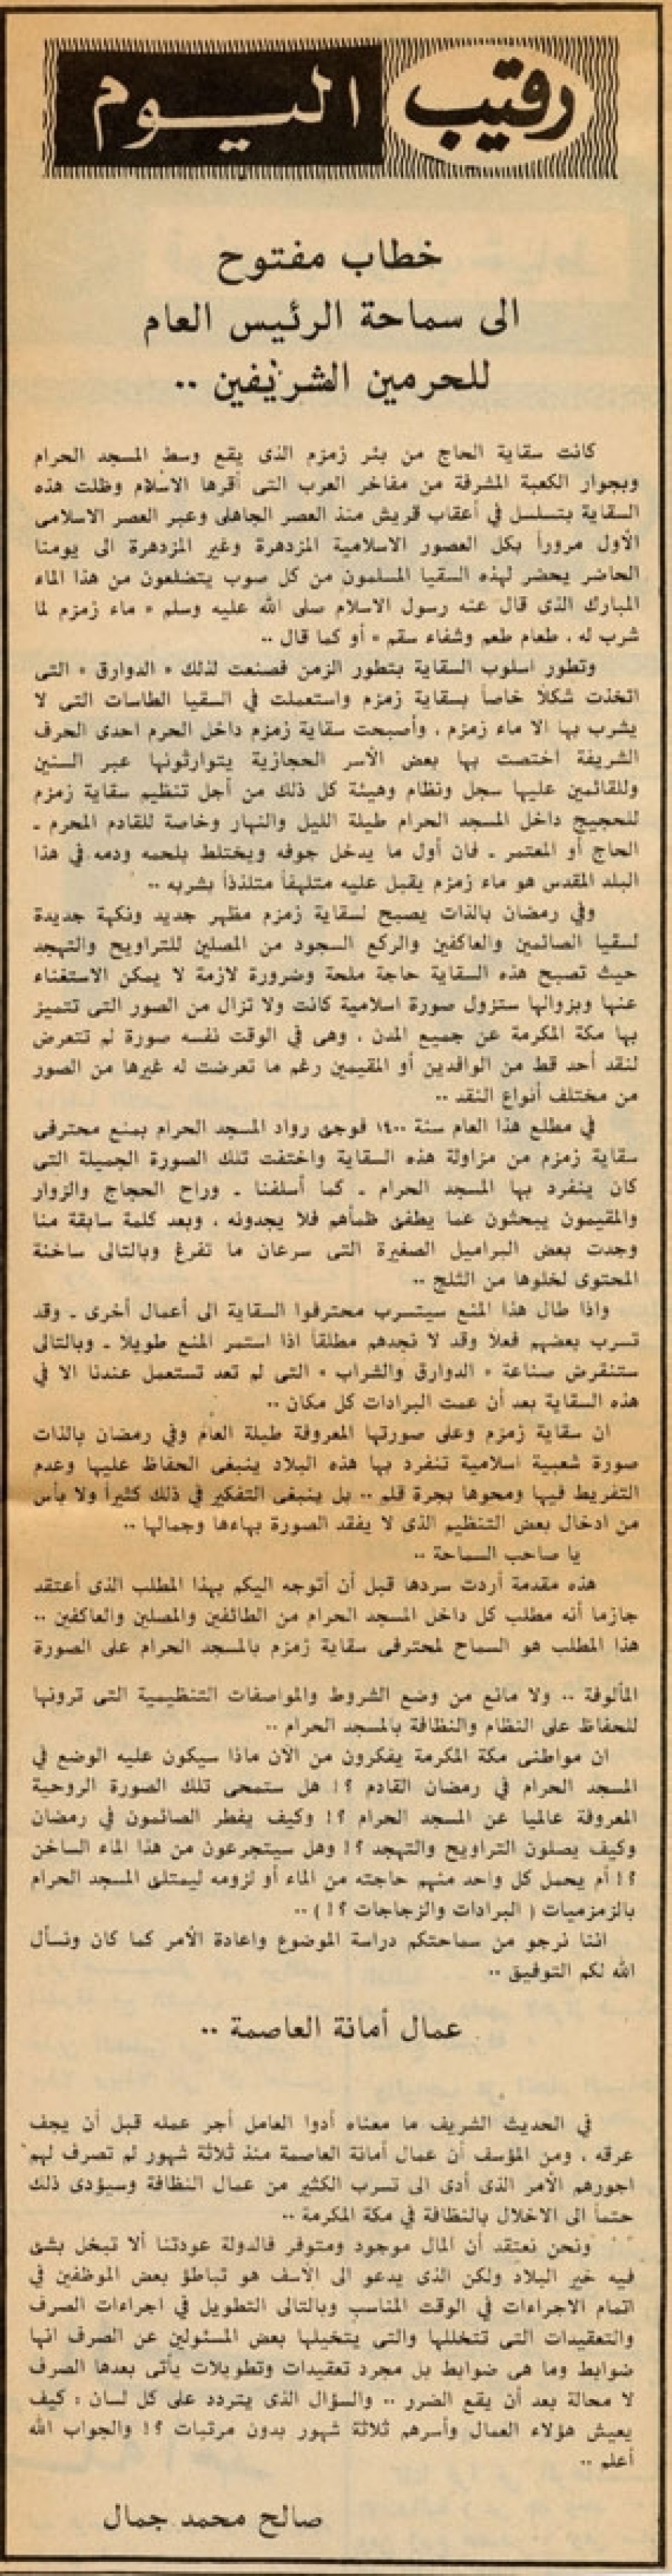 رقيب اليوم
خطاب مفتوح
الى سماحة الرئيس العام
للحرمين الشريفين ..
كانت سقاية الحاج من بئر زمزم الذى يقع وسط المسجد الحرام
وبجوار الكعبة المشرفة من مفاخر العرب التى أقرها الاسلام وظلت هذه
السقاية بتسلسل في أعقاب قريش منذ العصر الجاهلى وعبر العصر الاسلامى
الأول مروراً بكل العصور الاسلامية المزدهرة وغير المزدهرة الى يومنا
الحاضر يحضر لهذه السقيا المسلمون من كل صوب يتضلعون من هذا الماء
المبارك الذى قال عنه رسول الاسلام صلى الله عليه وسلم « ماء زمزم لما
شرب له . طعام طعم وشفاء سقم » أو كما قال ..
وتطور اسلوب السقاية بتطور الزمن فصنعت لذلك « الدوارق » التى
اتخذت شكلاً خاصاً بسقاية زمزم واستعملت في السقيا الطاسات التى لا
يشرب بها الا ماء زمزم . وأصبحت سقاية زمزم داخل الحرم احدى الحرف
الشريفة اختصت بها بعض الأسر الحجازية يتوارثونها عبر السنين
وللقائمين عليها سجل ونظام وهيئة كل ذلك من أجل تنظيم سقاية زمزم
للحجيج داخل المسجد الحرام طيلة الليل والنهار وخاصة للقادم المحرم ـ
الحاج أو المعتمر ـ فان أول ما يدخل جوفه ويختلط بلحمه ودمه في هذا
البلد المقدس هو ماء زمزم يقبل عليه متلهفاً متلذذاً بشربه ..
وفي رمضان بالذات يصبح لسقاية زمزم مظهر جديد ونكهة جديدة
لسقيا الصائمين والعاكفين والركع السجود من المصلين للتراويح والتهجد
حيث تصبح هذه السقاية حاجة ملحة وضرورة لازمة لا يمكن الاستغناء
عنها وبزوالها ستزول صورة اسلامية كانت ولا تزال من الصور التى تتميز
بها مكة المكرمة عن جميع المدن . وهى في الوقت نفسه صورة لم تتعرض
لنقد أحد قط من الوافدين أو المقيمين رغم ما تعرضت له غيرها من الصور
من مختلف أنواع النقد ..
في مطلع هذا العام سنة ١٤٠٠ فوجئ رواد المسجد الحرام بمنع محترفى
سقاية زمزم من مزاولة هذه السقاية واختفت تلك الصورة الجميلة التى
كان ينفرد بها المسجد الحرام ـ كما أسلفنا ـ وراح الحجاج والزوار
والمقيمون يبحثون عما يطفئ ظمأهم فلا يجدونه . وبعد كلمة سابقة منا
وجدت بعض البراميل الصغيرة التى سرعان ما تفرغ وبالتالى ساخنة
المحتوى لخلوها من الثلج ..
واذا طال هذا المنع سيتسرب محترفوا السقاية الى أعمال أخرى ـ وقد
تسرب بعضهم فعلا وقد لا نجدهم مطلقاً اذا استمر المنع طويلا ـ وبالتالى
ستنقرض صناعة « الدوارق والشراب » التى لم تعد تستعمل عندنا الا في
هذه السقاية بعد أن عمت البرادات كل مكان ..
ان سقاية زمزم وعلى صورتها المعروفة طيلة العام وفي رمضان بالذات
صورة شعبية اسلامية تنفرد بها هذه البلاد ينبغى الحفاظ عليها وعدم
التفريط فيها ومحوها بجرة قلم .. بل ينبغى التفكير في ذلك كثيراً ولا بأس
من ادخال بعض التنظيم الذى لا يفقد الصورة بهاءها وجمالها ..
يا صاحب السماحة ..
هذه مقدمة أردت سردها قبل أن أتوجه اليكم بهذا المطلب الذى أعتقد
جازما أنه مطلب كل داخل المسجد الحرام من الطائفين والمصلين والعاكفين ..
هذا المطلب هو السماح لمحترفى سقاية زمزم بالمسجد الحرام على الصورة
المألوفة .. ولا مانع من وضع الشروط والمواصفات التنظيمية التى ترونها
للحفاظ على النظام والنظافة بالمسجد الحرام ..
ان مواطنى مكة المكرمة يفكرون من الآن ماذا سيكون عليه الوضع في
المسجد الحرام في رمضان القادم ؟! هل ستمحى تلك الصورة الروحية
المعروفة عالميا عن المسجد الحرام ؟! وكيف يفطر الصائمون في رمضان
وكيف يصلون التراويح والتهجد ؟! وهل سيتجرعون من هذا الماء الساخن
؟! أم يحمل كل واحد منهم حاجته من الماء أو لزومه ليمتلئ المسجد الحرام
بالزمزميات ( البرادات والزجاجات ؟! ) ..
اننا نرجو من سماحتكم دراسة الموضوع واعادة الأمر كما كان ونسأل
الله لكم التوفيق ..
عمال أمانة العاصمة ..
في الحديث الشريف ما معناه أدوا العامل أجر عمله قبل أن يجف
عرقه . ومن المؤسف أن عمال أمانة العاصمة منذ ثلاثة شهور لم تصرف لهم
اجورهم الأمر الذى أدى الى تسرب الكثير من عمال النظافة وسيؤدى ذلك
حتماً الى الاخلال بالنظافة في مكة المكرمة ..
ونحن نعتقد أن المال موجود ومتوفر فالدولة عودتنا ألا تبخل بشئ
فيه خير البلاد ولكن الذى يدعو الى الأسف هو تباطؤ بعض الموظفين في
اتمام الاجراءات في الوقت المناسب وبالتالى التطويل في اجراءات الصرف
والتعقيدات التى تتخللها والتى يتخيلها بعض المسئولين عن الصرف انها
ضوابط وما هى ضوابط بل مجرد تعقيدات وتطويلات يأتى بعدها الصرف
لا محالة بعد أن يقع الضرر .. والسؤال الذى يتردد على كل لسان : كيف
يعيش هؤلاء العمال وأسرهم ثلاثة شهور بدون مرتبات ؟! والجواب الله
أعلم ..
صالح محمد جمال